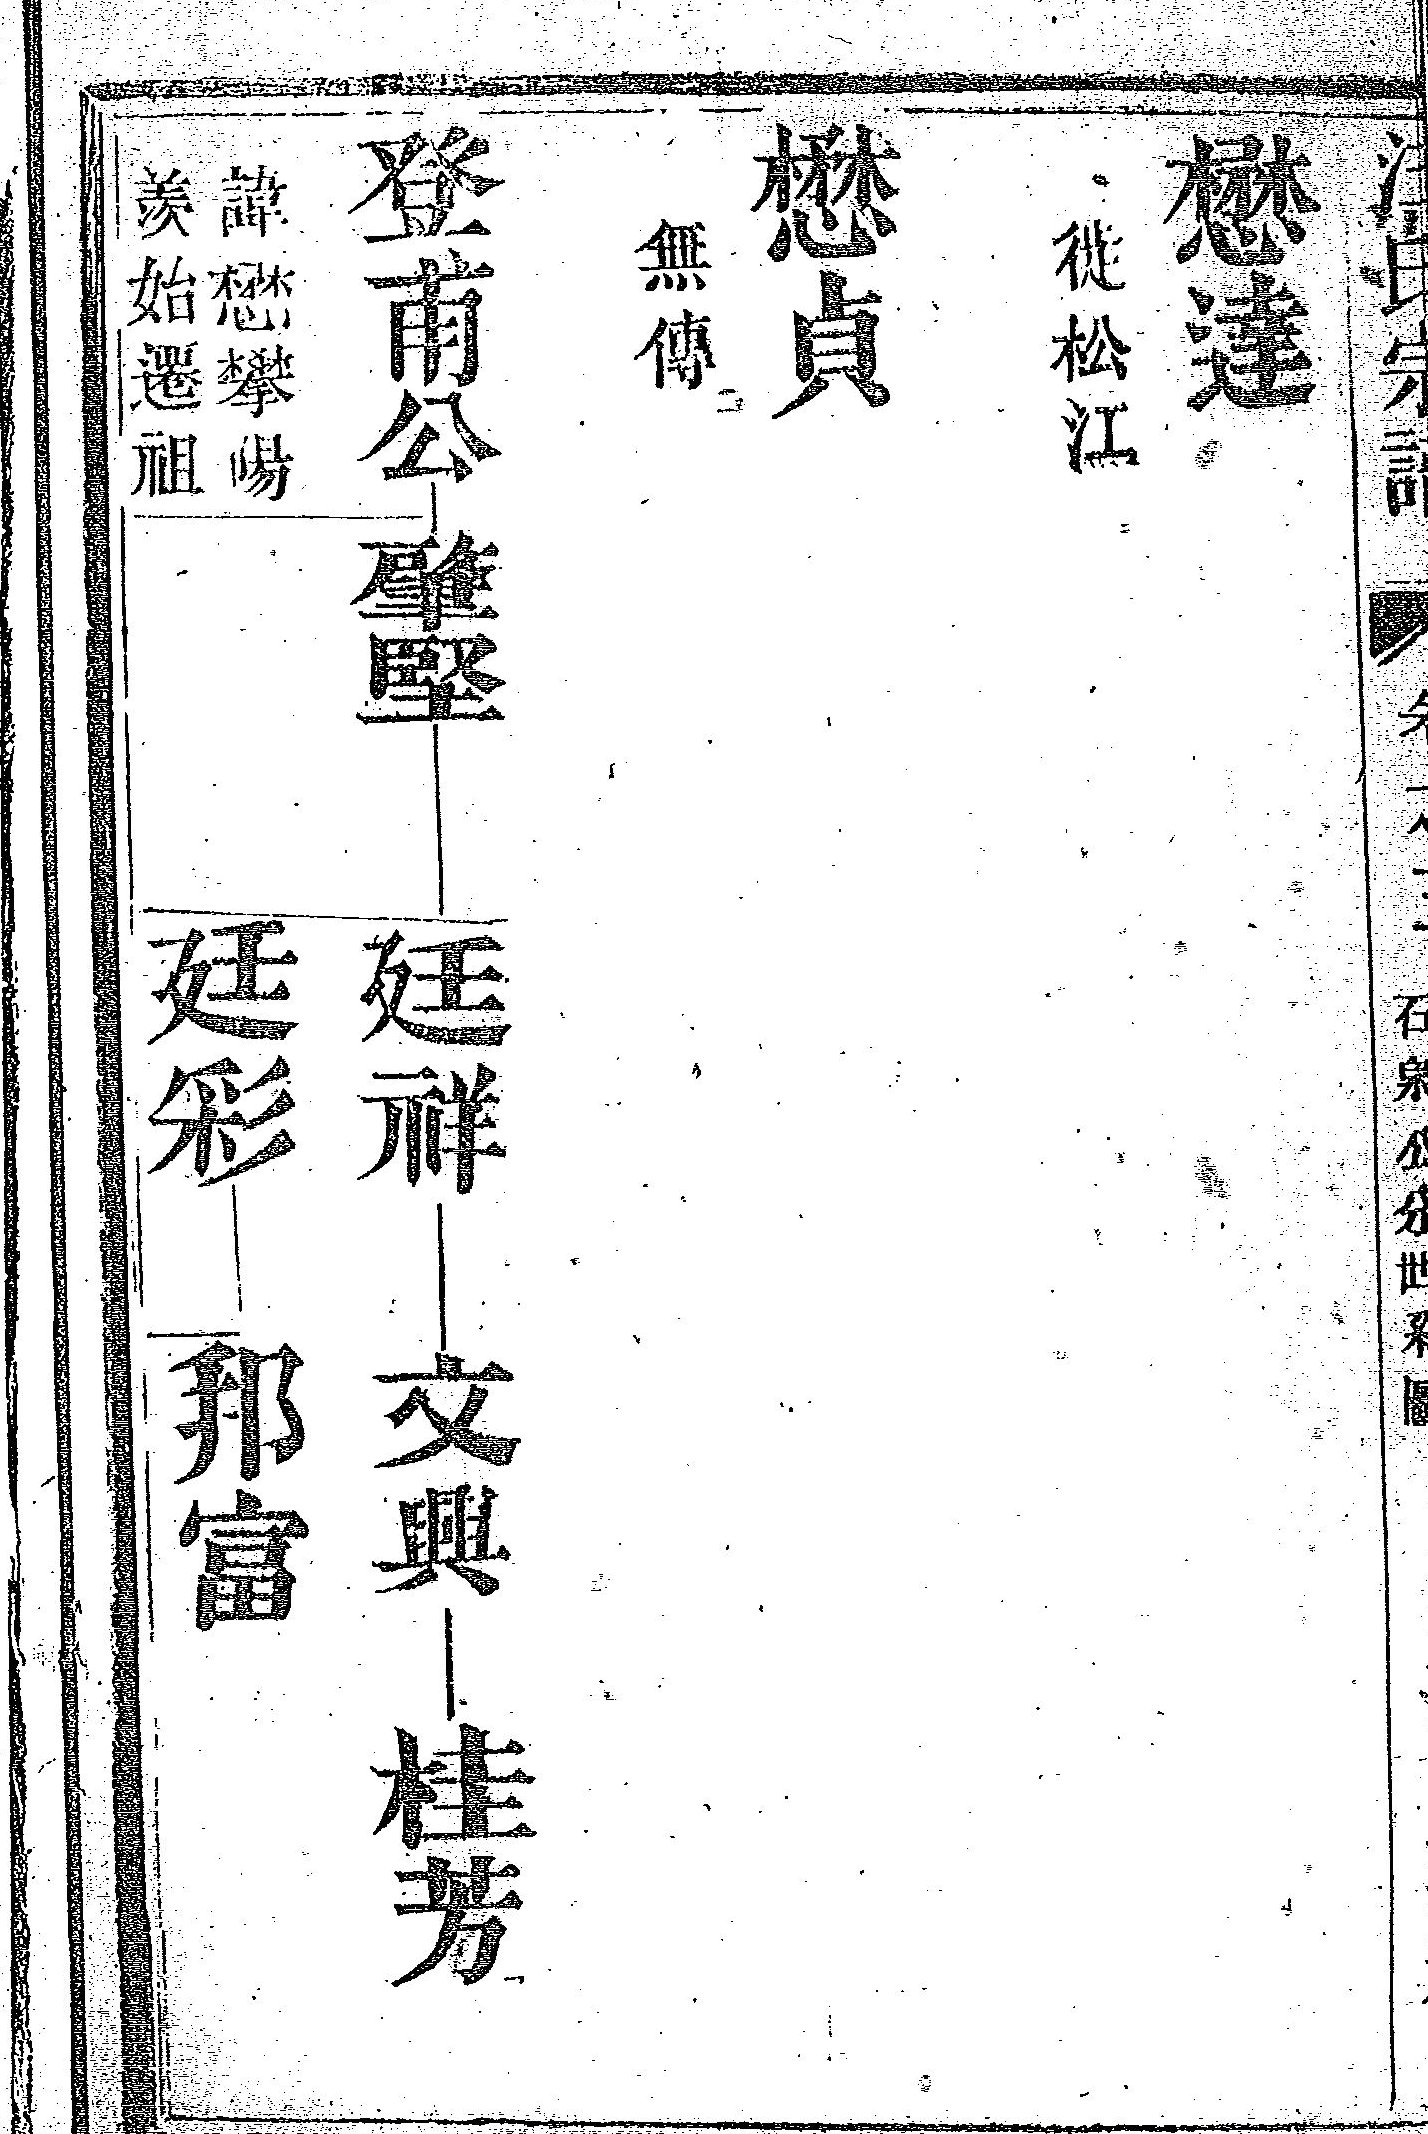 氏宗譜
石泉公分世系圖
懋達
徙松江
懋貞
無傳
登甫公 肇堅 廷祥 文興 桂芳
諱懋攀暘
羨始遷祖
廷彩 邦富